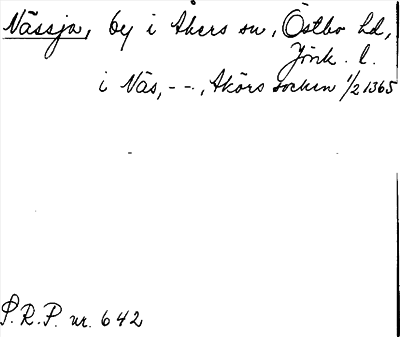 Nässja, by i Åkers sn, Östbo hd,
Jönk. l.
i Näs, - - , Akörs socken 1/2 1365
P.R.P. nr. 642